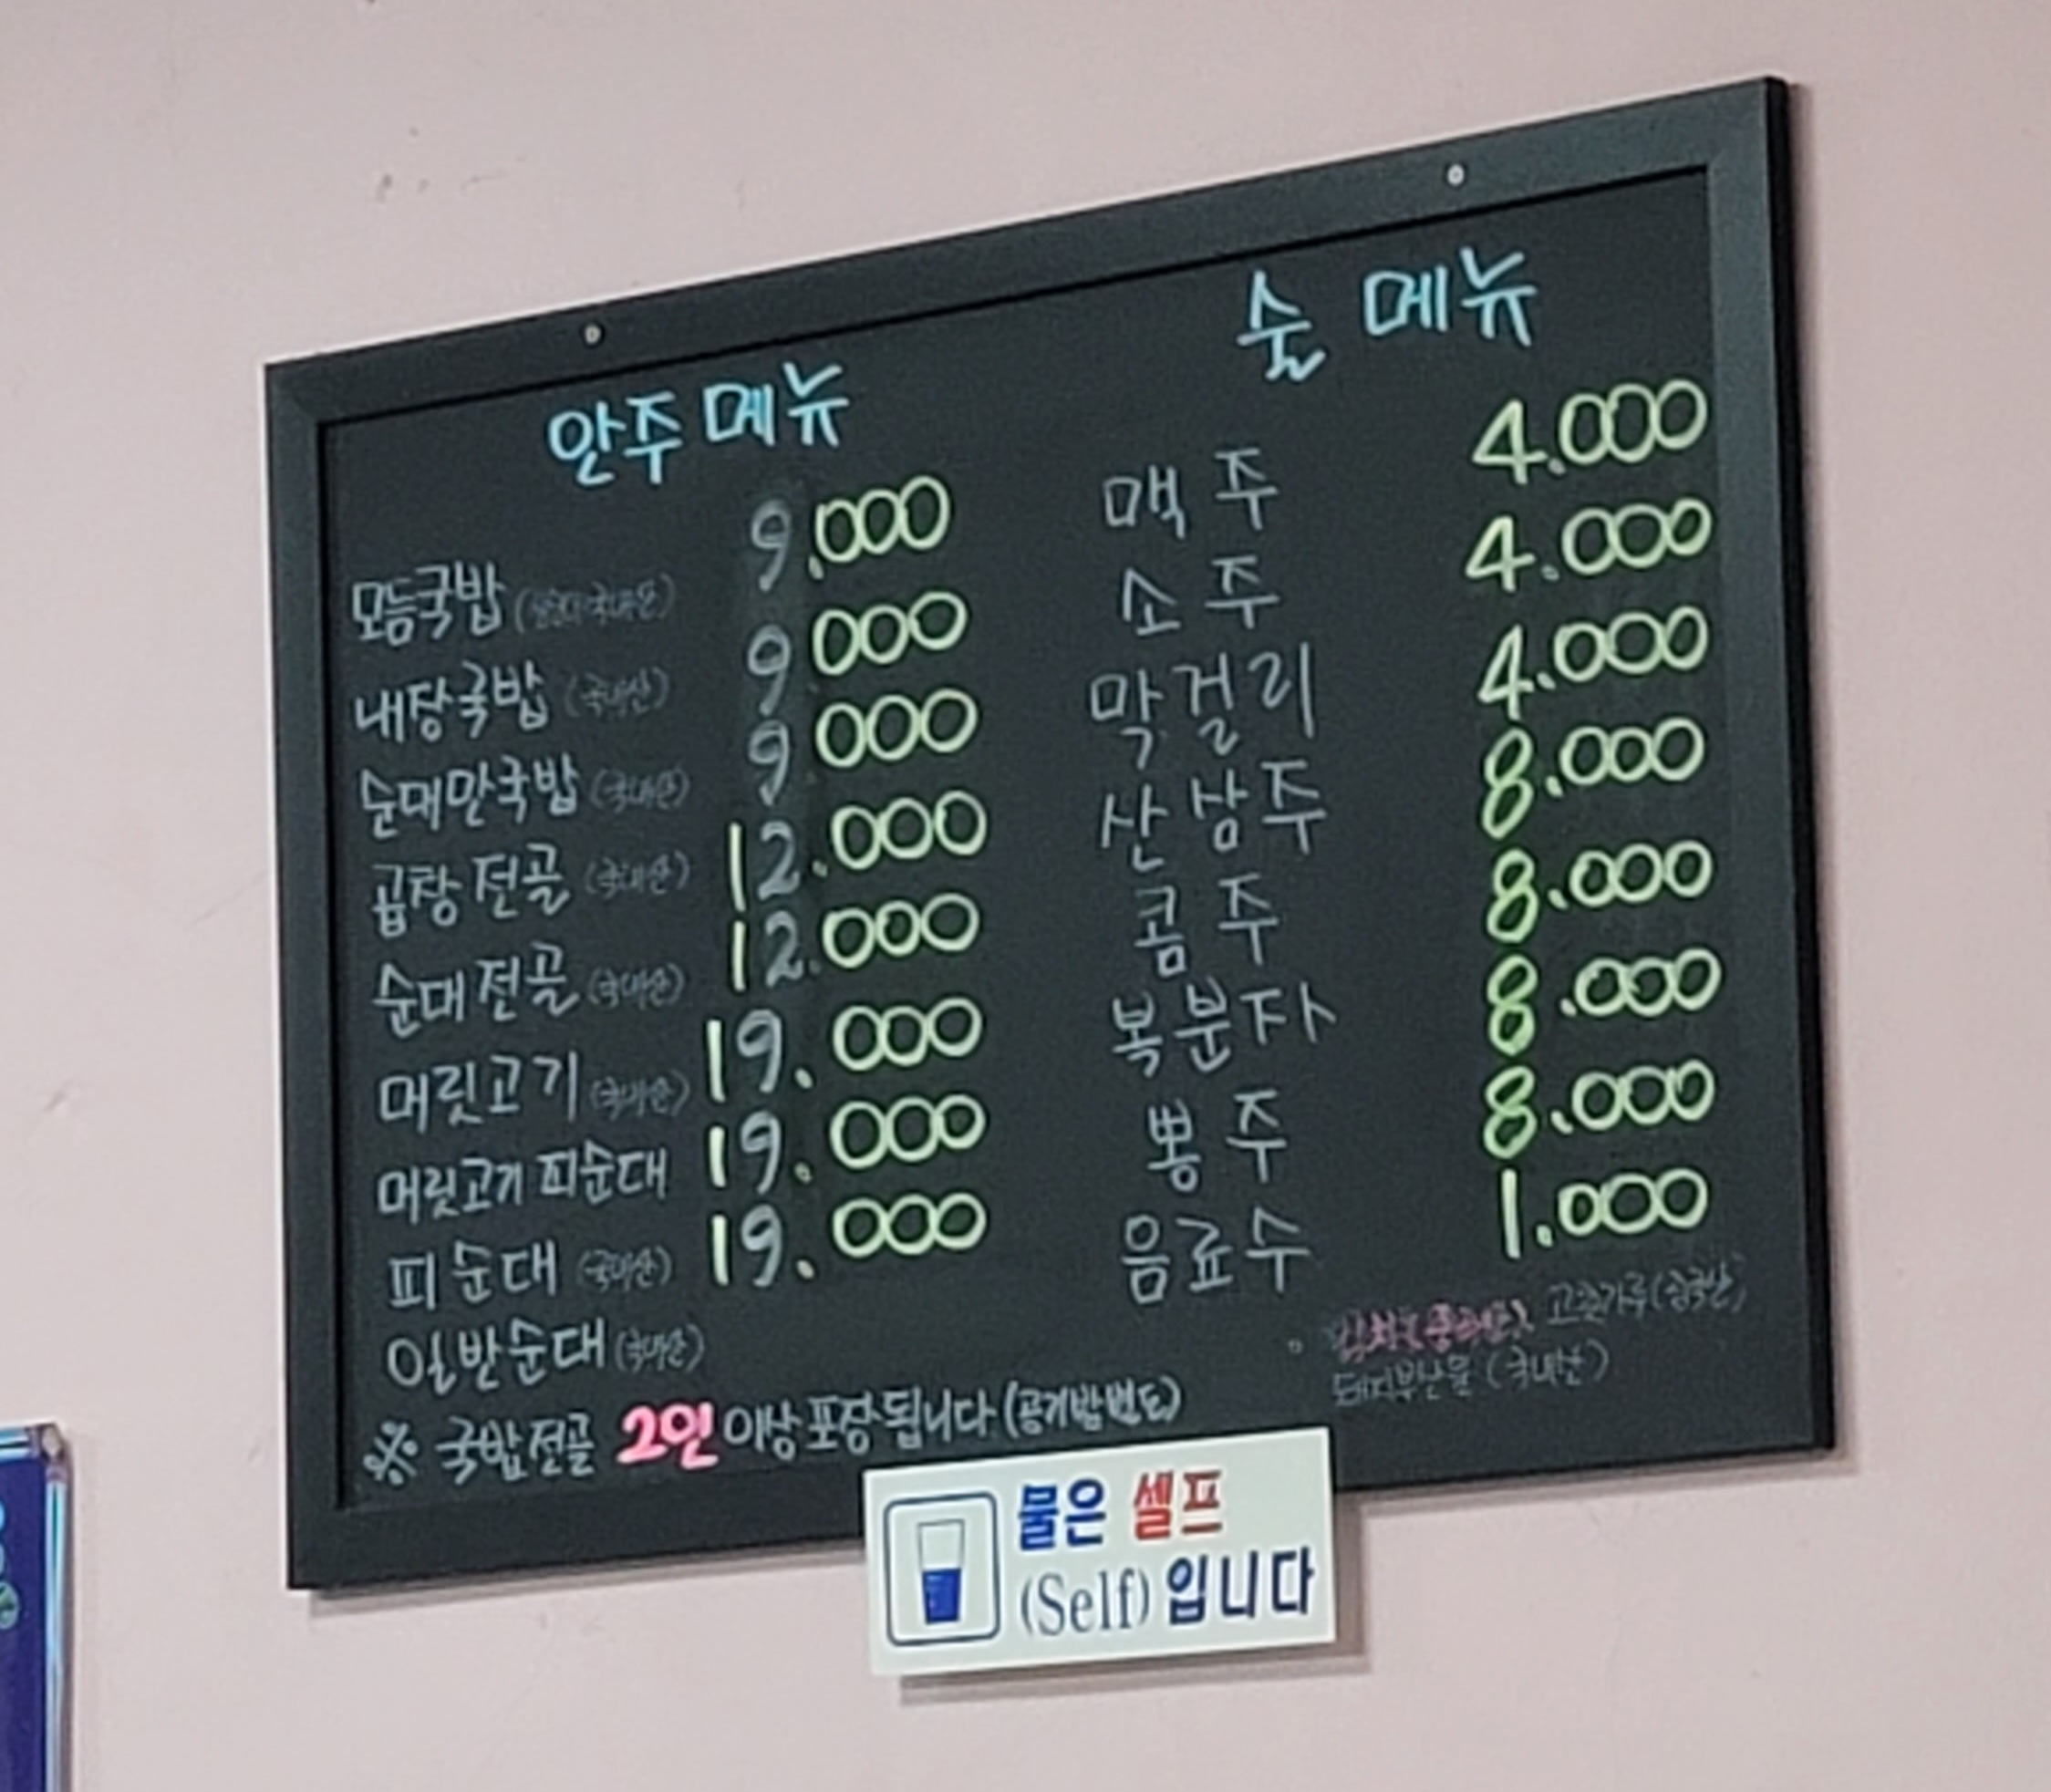 안주 메뉴
모듬국밥 9.000
내장국밥 (국내산) 9.000
순대만국밥 (국내산) 9.000
곱창전골 (국내산) 12.000
순대전골 (국내산) 12.000
머릿고기 (국내산) 19.000
머릿고기 피순대 19.000
피순대 (국내산) 19.000
일반순대 (국내산)
※ 국밥전골 2인 이상 포장됩니다 (공기밥별도)
술 메뉴
맥주 4.000
소주 4.000
막걸리 4.000
산삼주 8.000
콤주 8.000
복분자 8.000
뽕주 8.000
음료수 1.000
고춧가루
돼지부산물 (국내산)
물은 셀프
(Self) 입니다